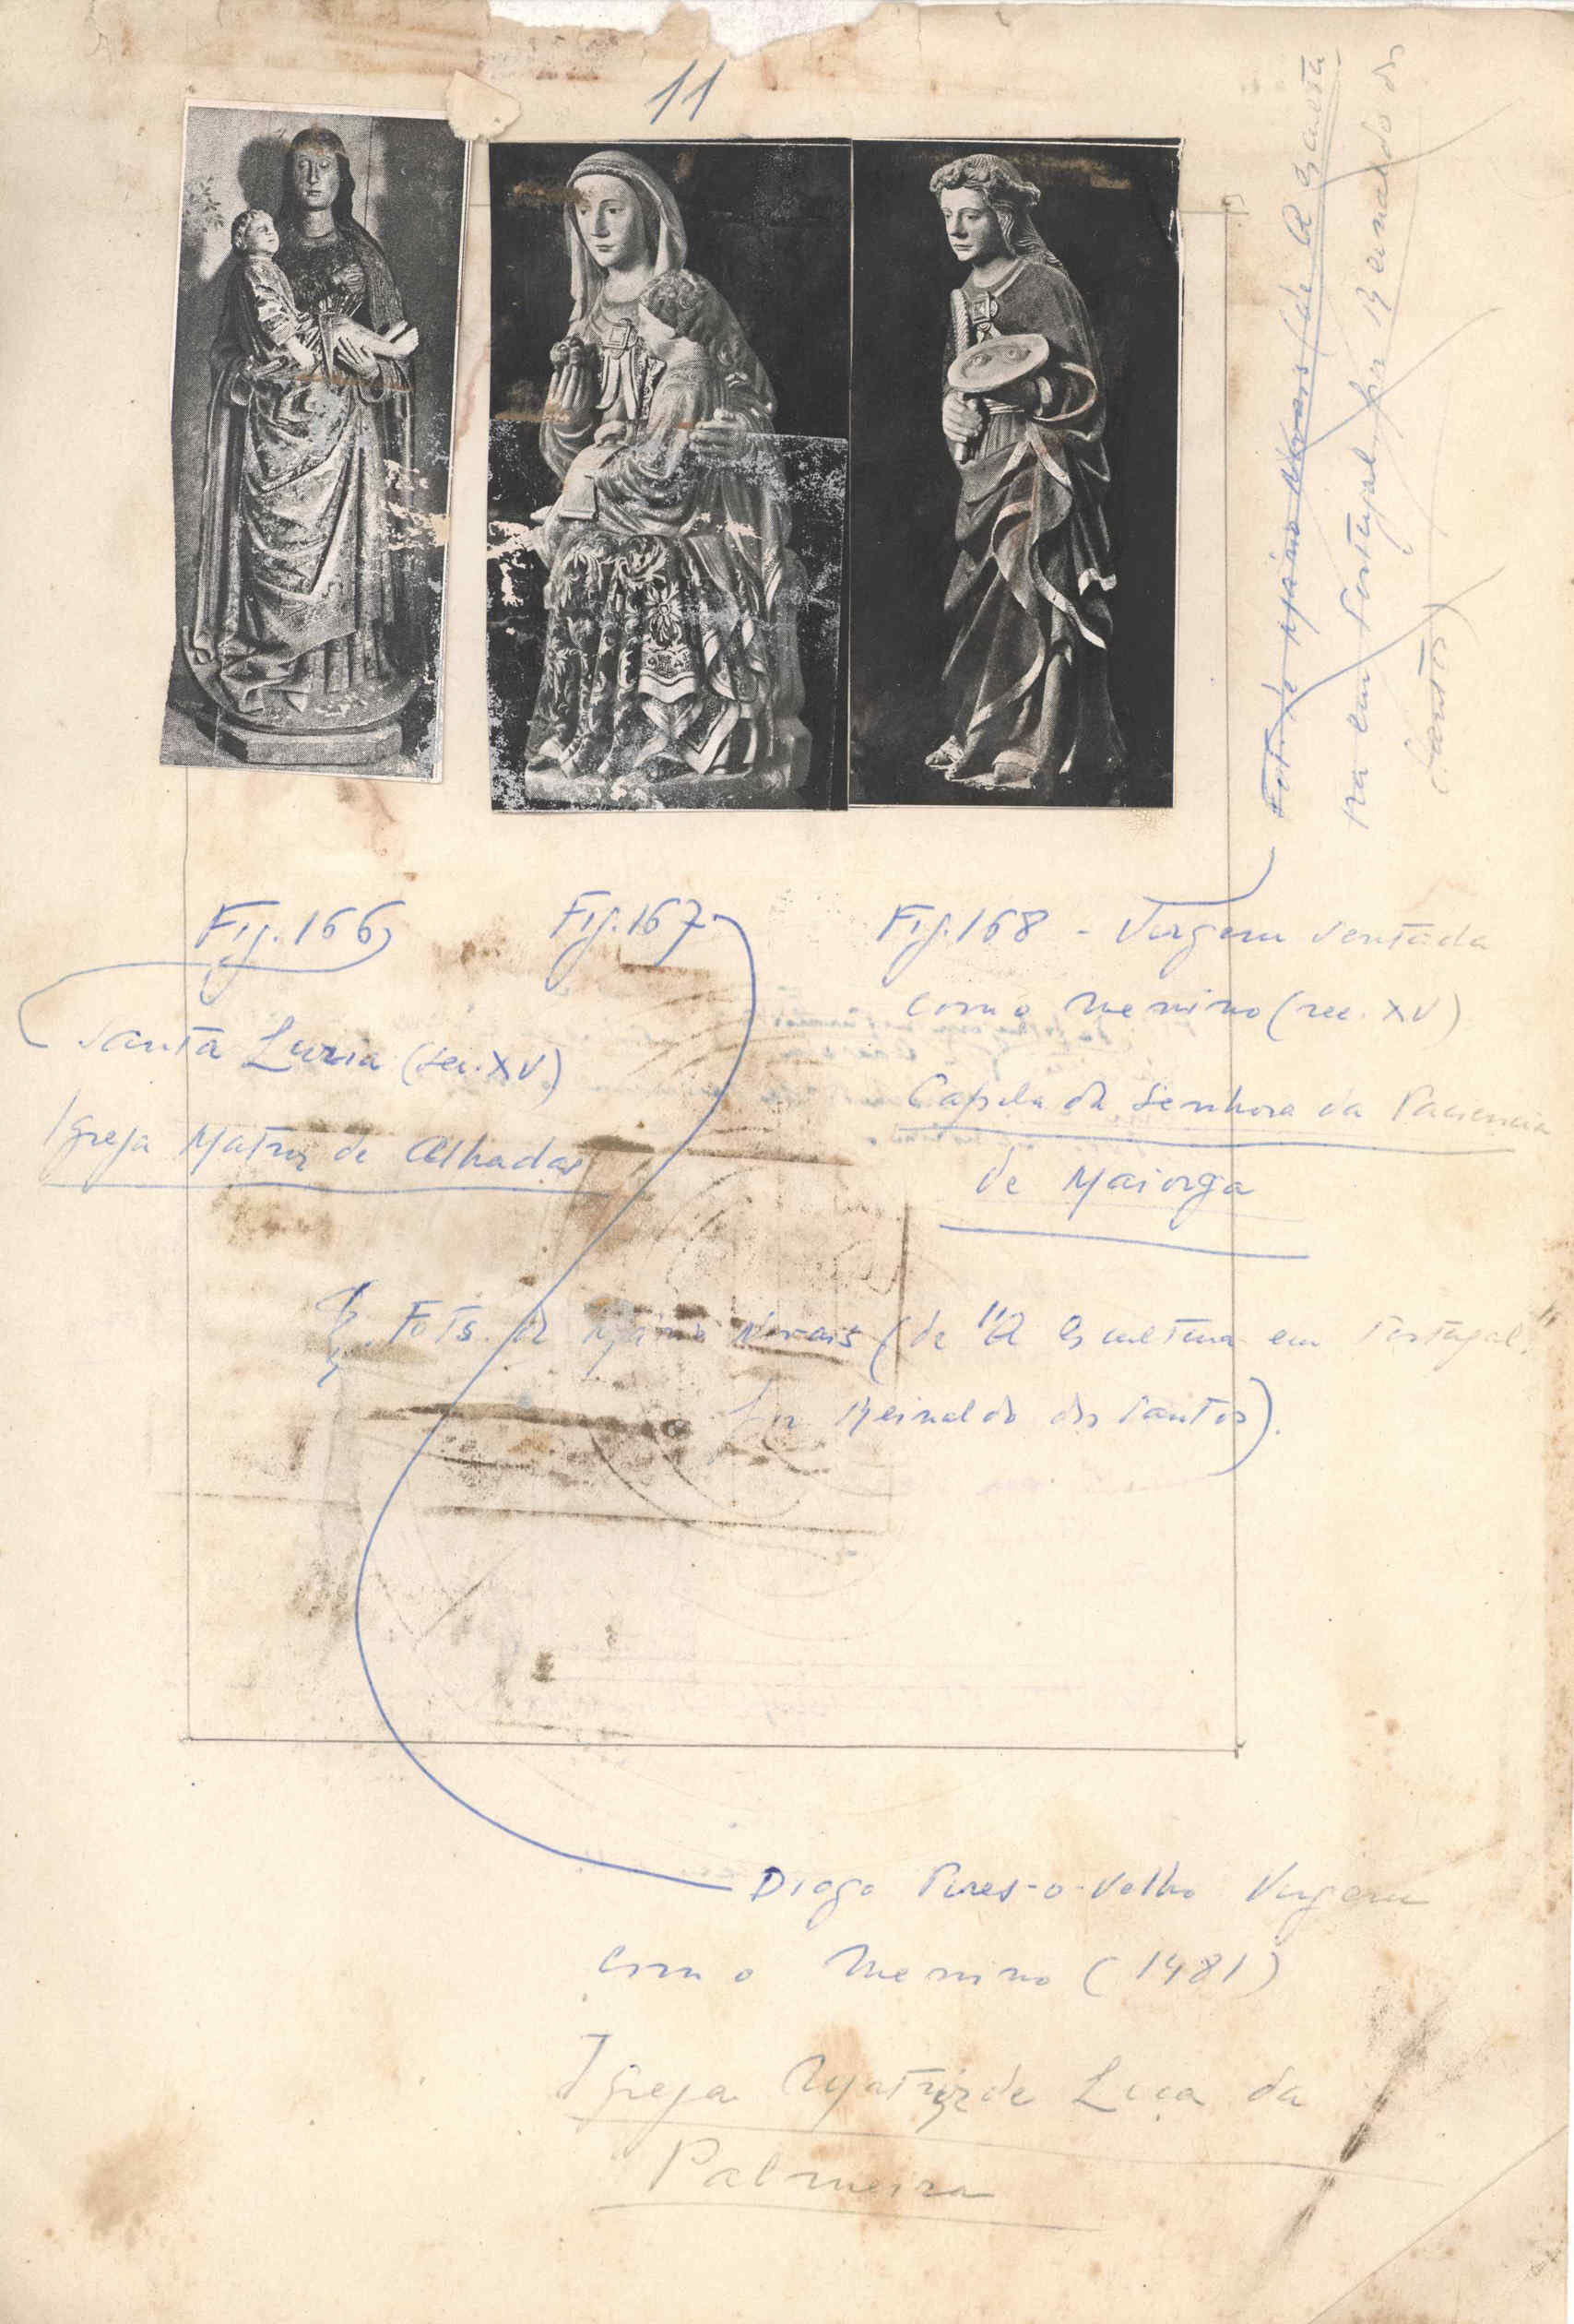 11
Fig. 166
Santa Luzia (sec. XV)
Igreja Matriz de Alhadas
Fig. 167
Fig. 168 - Virgem sentada
com o Menino (sec. XV)
Capela da Senhora da Paciencia
de Maiorga
Fots. de Mario Novais (de "A Escultura em Portugal"
por Reinaldo dos Santos).
Diogo Pires-o-Velho Virgem
com o Menino (1481)
Igreja Matriz de Leça da
Palmeira
Fot. de Mário Novais (de A Escultu-
ra em Portugal, por Reinaldo dos
Santos)